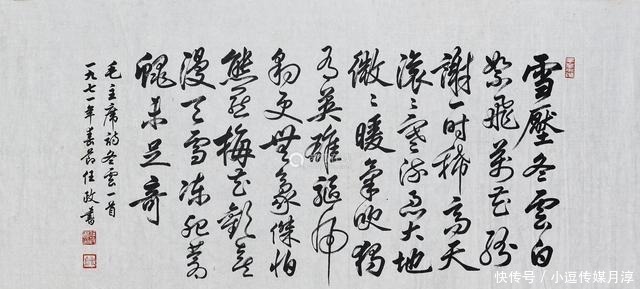 雪壓冬雲白
絮飛萬花紛
謝一時稀高天
滾〻寒流急大地
微〻暖氣吹獨
有英雄驅虎
豹更無豪傑怕
熊羆梅花歡喜
漫天雪凍死蒼
蠅未足奇
毛主席詩冬雲一首
一九七一年春節任政書
快传号 / 小逗传媒月淳